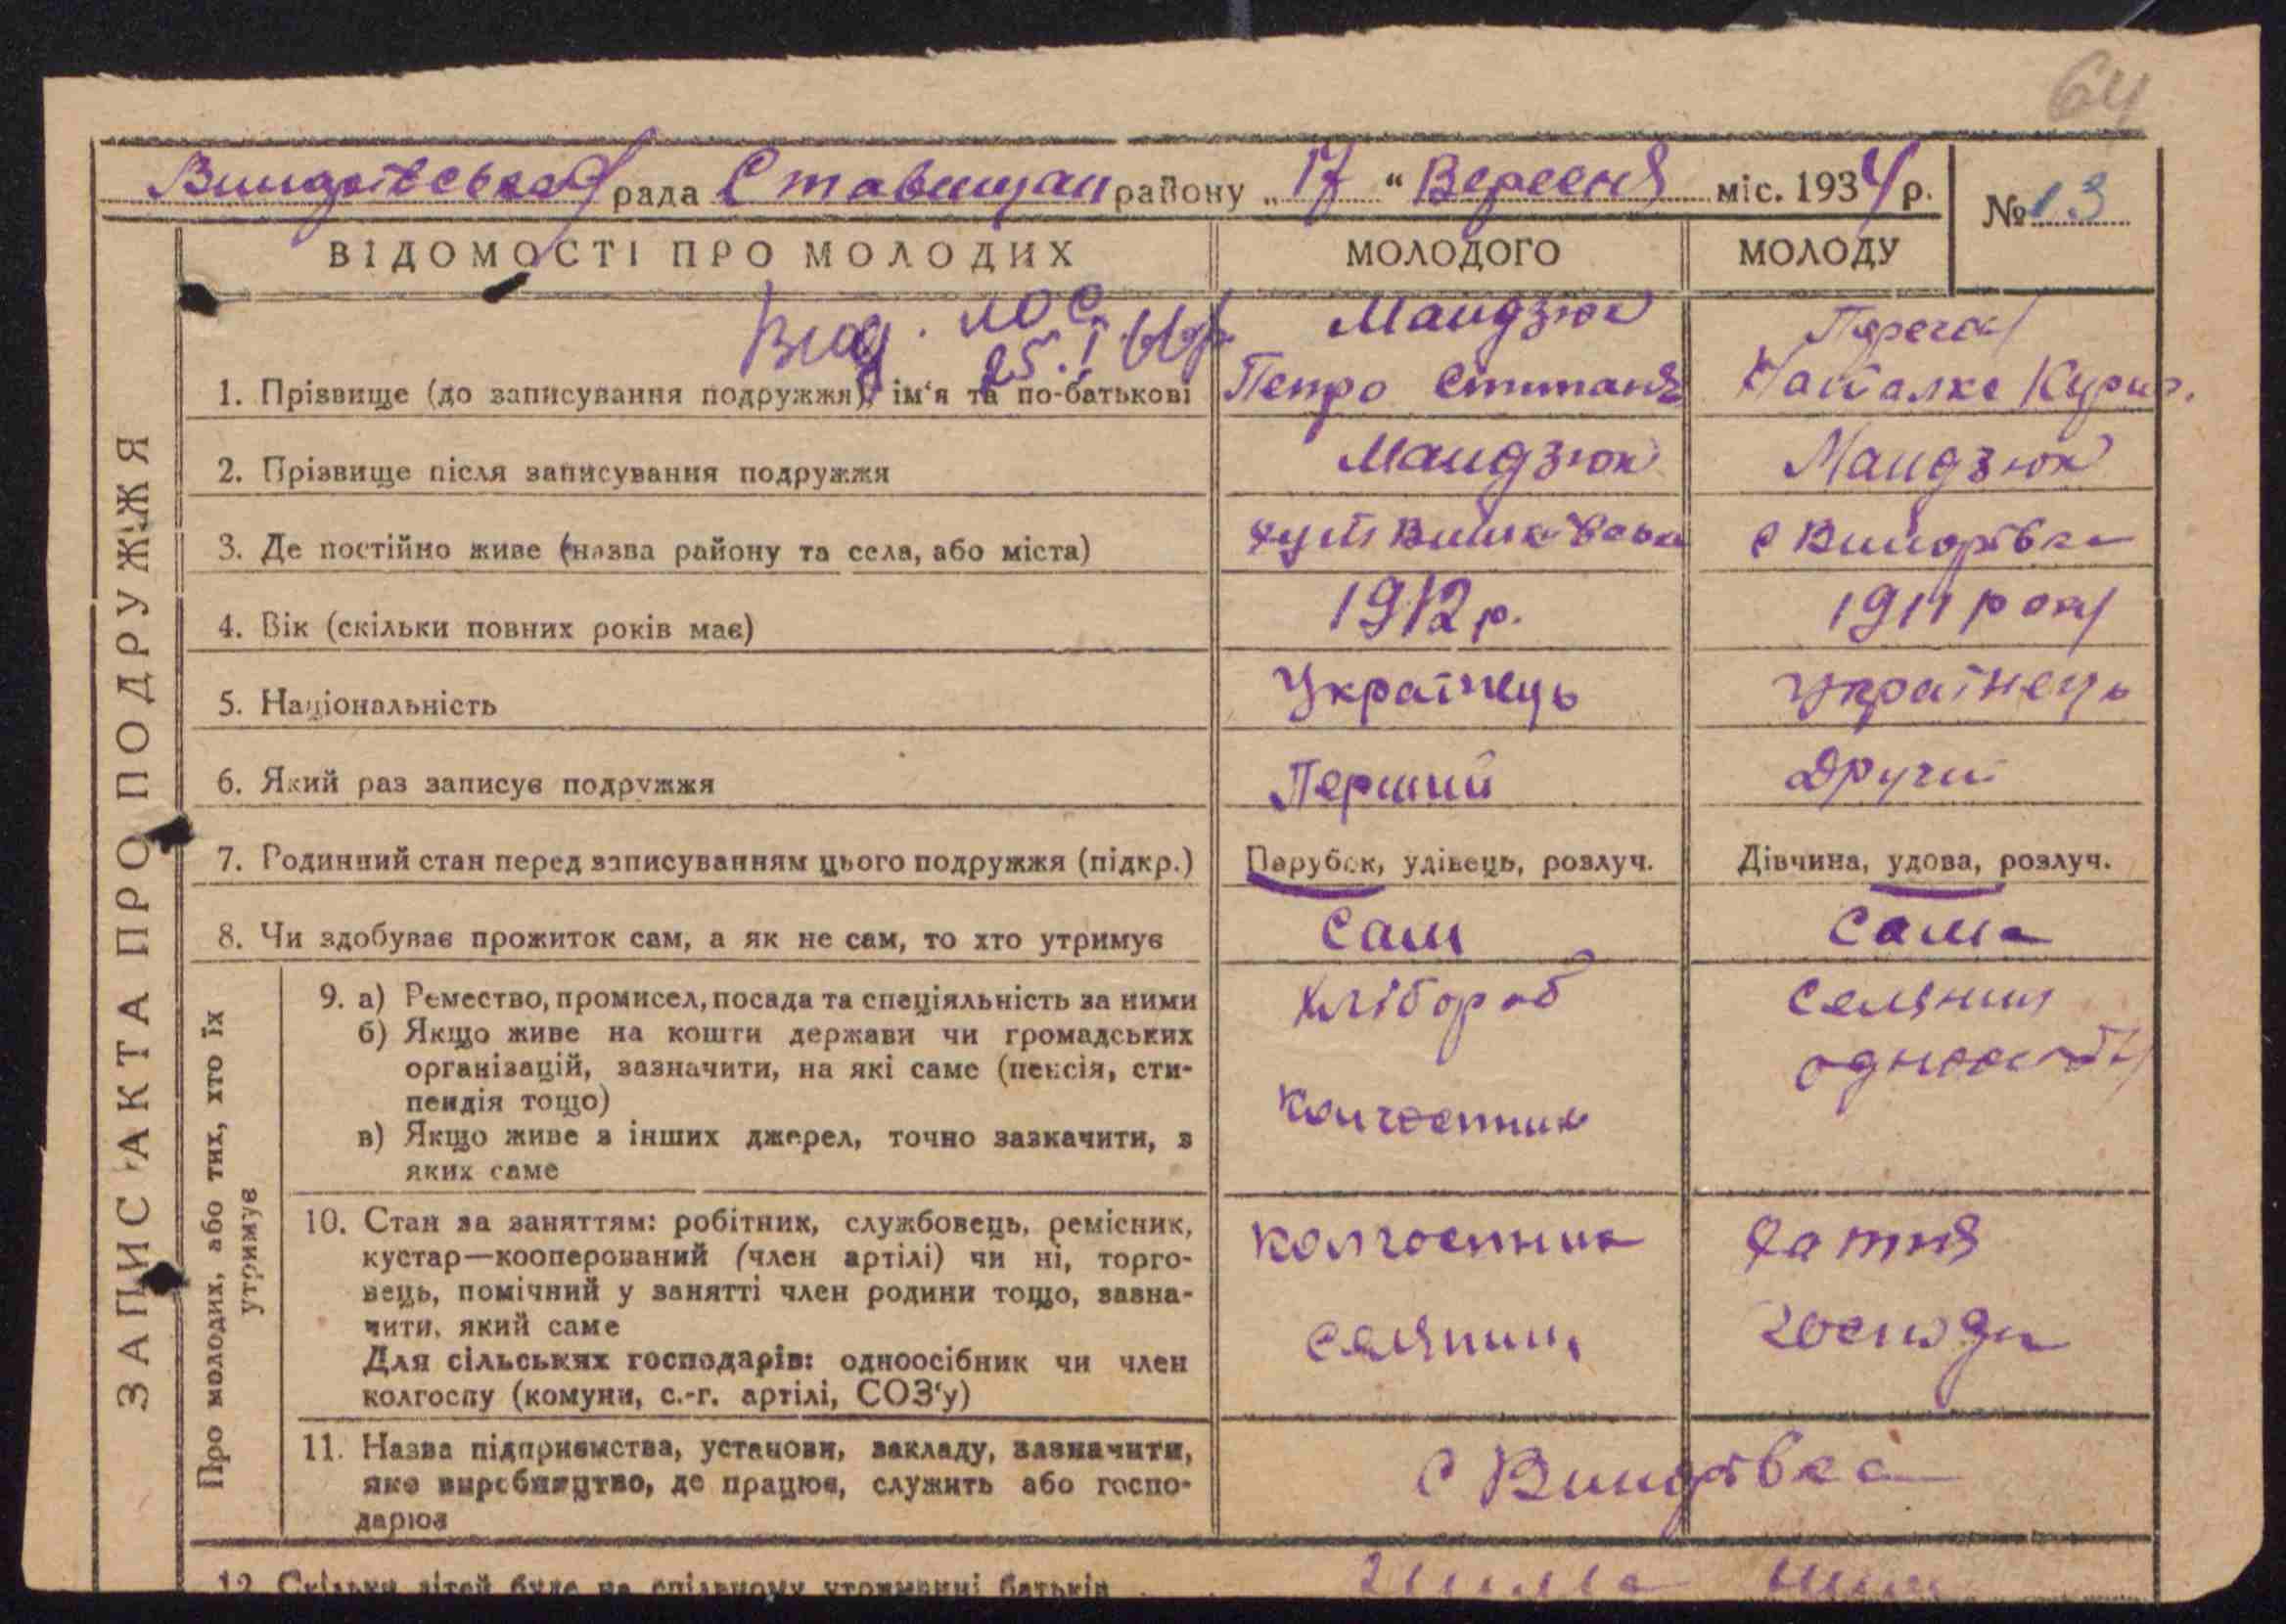 64
рада Ставищан району „17“ Вересня міс. 1934 р.
№ 13
ВІДОМОСТІ ПРО МОЛОДИХ
МОЛОДОГО
МОЛОДУ
ЗАПИС АКТА ПРО ПОДРУЖЖЯ
25.I
1. Прізвище (до записування подружжя), ім‘я та по-батькові
Мандзюк
Петро
2. Прізвище після записування подружжя
Мандзюк
Мандзюк
3. Де постійно живе (назва району та села, або міста)
с
4. Вік (скільки повних років має)
1912 р.
1911 року
5. Національність
Українець
Українець
6. Який раз записує подружжя
Перший
Другий
7. Родинний стан перед записуванням цього подружжя (підкр.)
Парубок, удівець, розлуч.
Дівчина, удова, розлуч.
8. Чи здобуває прожиток сам, а як не сам, то хто утримує
Сам
Сама
Про молодих, або тих, хто їх
утримує
9. а) Ремество, промисел, посада та спеціяльність за ними
б) Якщо живе на кошти держави чи громадських
організацій, зазначити, на які саме (пенсія, сти-
пендія тощо)
в) Якщо живе з інших джерел, точно зазкачити, з
яких саме
Хлібороб
Колгоспник
Селянин
10. Стан за заняттям: робітник, службовець, ремісник,
кустар—кооперований (член артілі) чи ні, торго-
вець, помічний у занятті член родини тощо, зазна-
чити, який саме
Для сільських господарів: одноосібник чи член
колгоспу (комуни, с.-г. артілі, СОЗ‘у)
Колгоспник
Селянин
11. Назва підприємства, установи, закладу, зазначити,
яке виробництво, де працює, служить або госпо-
дарює
с
12. Скільки дітей буде на спільному утриманні батьків